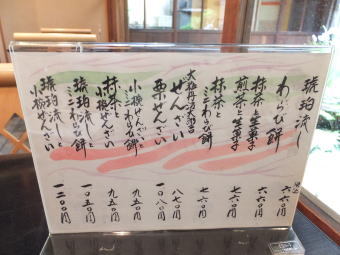 琥珀流し
六六〇円
わらび餅
六六〇円
煎茶と生菓子
七六〇円
抹茶と生菓子
七六〇円
抹茶と
ミニわらび餅
七六〇円
大極丹波大納言
ぜんざい
八七〇円
栗ぜんざい
一〇八〇円
小椀ぜんざいと
ミニわらび餅
九五〇円
抹茶と
小椀ぜんざい
九五〇円
琥珀流しと
ミニわらび餅
一〇五〇円
琥珀流しと
小椀ぜんざい
一二〇〇円